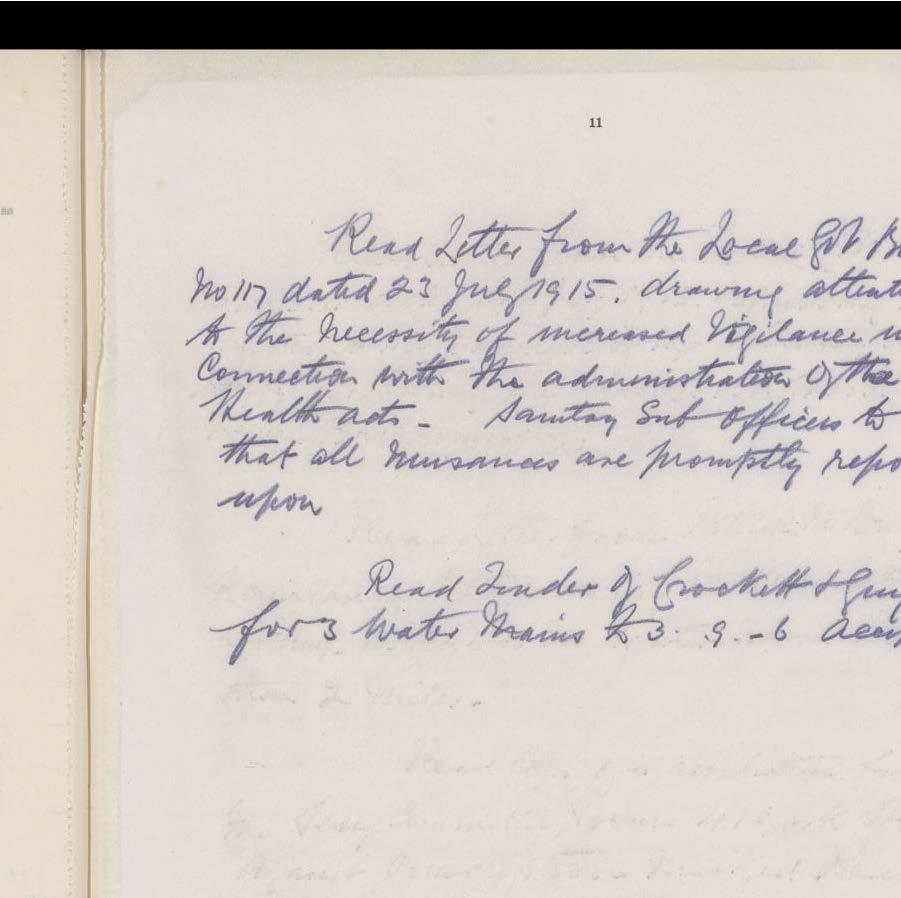 11
Read Letter from the Local Govt
No 117 dated 23 July 1915. drawing
to the necessity of increased Vigilance
Connection with the administration of the
Health acts - Sanitary Sub Officers to
that all nuisances are promptly
upon
Read Tender of Crockett &
for 3 Water Mains £3. 9 - 6